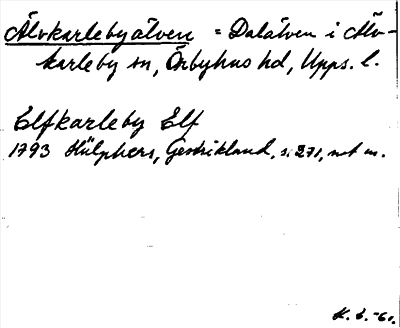 Älvkarlebyälven = Dalälven i Älv-
karleby sn, Örbyhus hd, Upps. l.
Elfkarleby Elf
1793 Hülphers, Gestrikland, s. 271, not m.
K. L. -61.